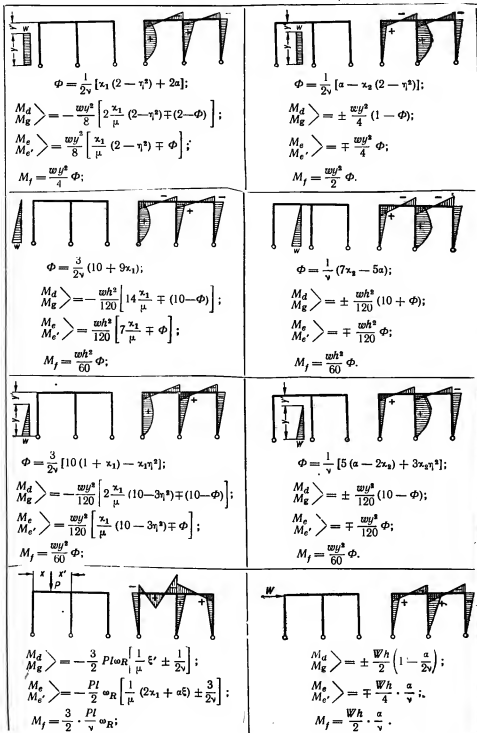 y
y
w
Φ = 1/2ν [ϰ₁ (2 − η²) + 2a];
M_d
M_g > = − wy²/8 [2 ϰ₁/μ (2−η²) ∓ (2−Φ)];
M_e
M_e' > = wy²/8 [ϰ₁/μ (2 − η²) ∓ Φ];
M_f = wy²/4 Φ;
y
y
w
Φ = 1/2ν [a − ϰ₂ (2 − η²)];
M_d
M_g > = ± wy²/4 (1 − Φ);
M_e
M_e' > = ∓ wy²/4 Φ;
M_f = wy²/2 Φ.
w
Φ = 3/2ν (10 + 9ϰ₁);
M_d
M_g > = − wh²/120 [14 ϰ₁/μ ∓ (10−Φ)];
M_e
M_e' > = wh²/120 [7 ϰ₁/μ ∓ Φ];
M_f = wh²/60 Φ;
w
Φ = 1/ν (7ϰ₂ − 5a);
M_d
M_g > = ± wh²/120 (10 + Φ);
M_e
M_e' > = ∓ wh²/120 Φ;
M_f = wh²/60 Φ.
y
y
w
Φ = 3/2ν [10 (1 + ϰ₁) − ϰ₁η²];
M_d
M_g > = − wy²/120 [2 ϰ₁/μ (10−3η²) ∓ (10−Φ)];
M_e
M_e' > = wy²/120 [ϰ₁/μ (10−3η²) ∓ Φ];
M_f = wy²/60 Φ;
y
y
w
Φ = 1/ν [5 (a − 2ϰ₂) + 3ϰ₂η²];
M_d
M_g > = ± wy²/120 (10 − Φ);
M_e
M_e' > = ∓ wy²/120 Φ;
M_f = wy²/60 Φ.
x x'
P
M_d
M_g > = − 3/2 Plω_R [1/μ ξ' ± 1/2ν];
M_e
M_e' > = − Pl/2 ω_R [1/μ (2ϰ₁ + aξ) ± 3/2ν];
M_f = 3/2 · Pl/ν ω_R;
W
M_d
M_g > = ± Wh/2 (1 − a/2ν);
M_e
M_e' > = ∓ Wh/4 · a/ν;
M_f = Wh/2 · a/ν.